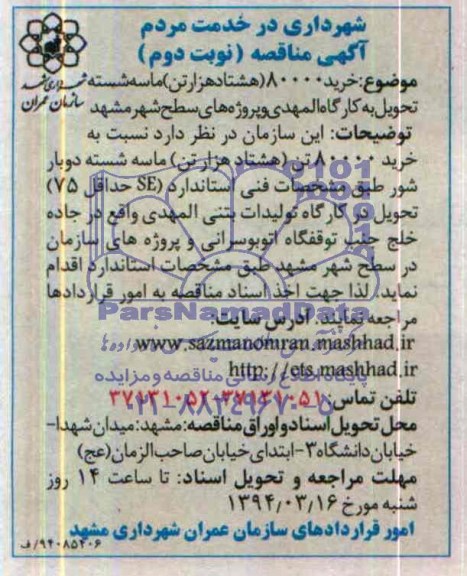 شهرداری در خدمت مردم
آگهی مناقصه (نوبت دوم)
شهرداری مشهد
سازمان عمران
موضوع:خرید۸۰۰۰۰(هشتادهزارتن)ماسه شسته
تحویل به کارگاه المهدی وپروژه های سطح شهر مشهد
توضیحات: این سازمان در نظر دارد نسبت به
خرید ۸۰۰۰۰ تن (هشتاد هزار تن) ماسه شسته دوبار
شور طبق مشخصات فنی استاندارد (SE حداقل ۷۵)
تحویل در کارگاه تولیدات بتنی المهدی واقع در جاده
خلج جنب توقفگاه اتوبوسرانی و پروژه های سازمان
در سطح شهر مشهد طبق مشخصات استاندارد اقدام
نماید. لذا جهت اخذ اسناد مناقصه به امور قراردادها
مراجعه نمایند. آدرس سایت:
ParsNamadData
www.sazmanomran.mashhad.ir
http://ets.mashhad.ir
پایگاه اطلاع رسانی مناقصه و مزایده
تلفن تماس: ۳۷۱۳۱۰۵۱-۳۷۱۳۱۰۵۲
۰۲۱-۸۸۳۴۹۶۷۰-۵
محل تحویل اسناد و اوراق مناقصه: مشهد: میدان شهدا-
خیابان دانشگاه۳-ابتدای خیابان صاحب الزمان(عج)
مهلت مراجعه و تحویل اسناد: تا ساعت ۱۴ روز
شنبه مورخ ۱۳۹۴/۰۳/۱۶
امور قراردادهای سازمان عمران شهرداری مشهد
۹۴۰۸۵۴۰۶/ف